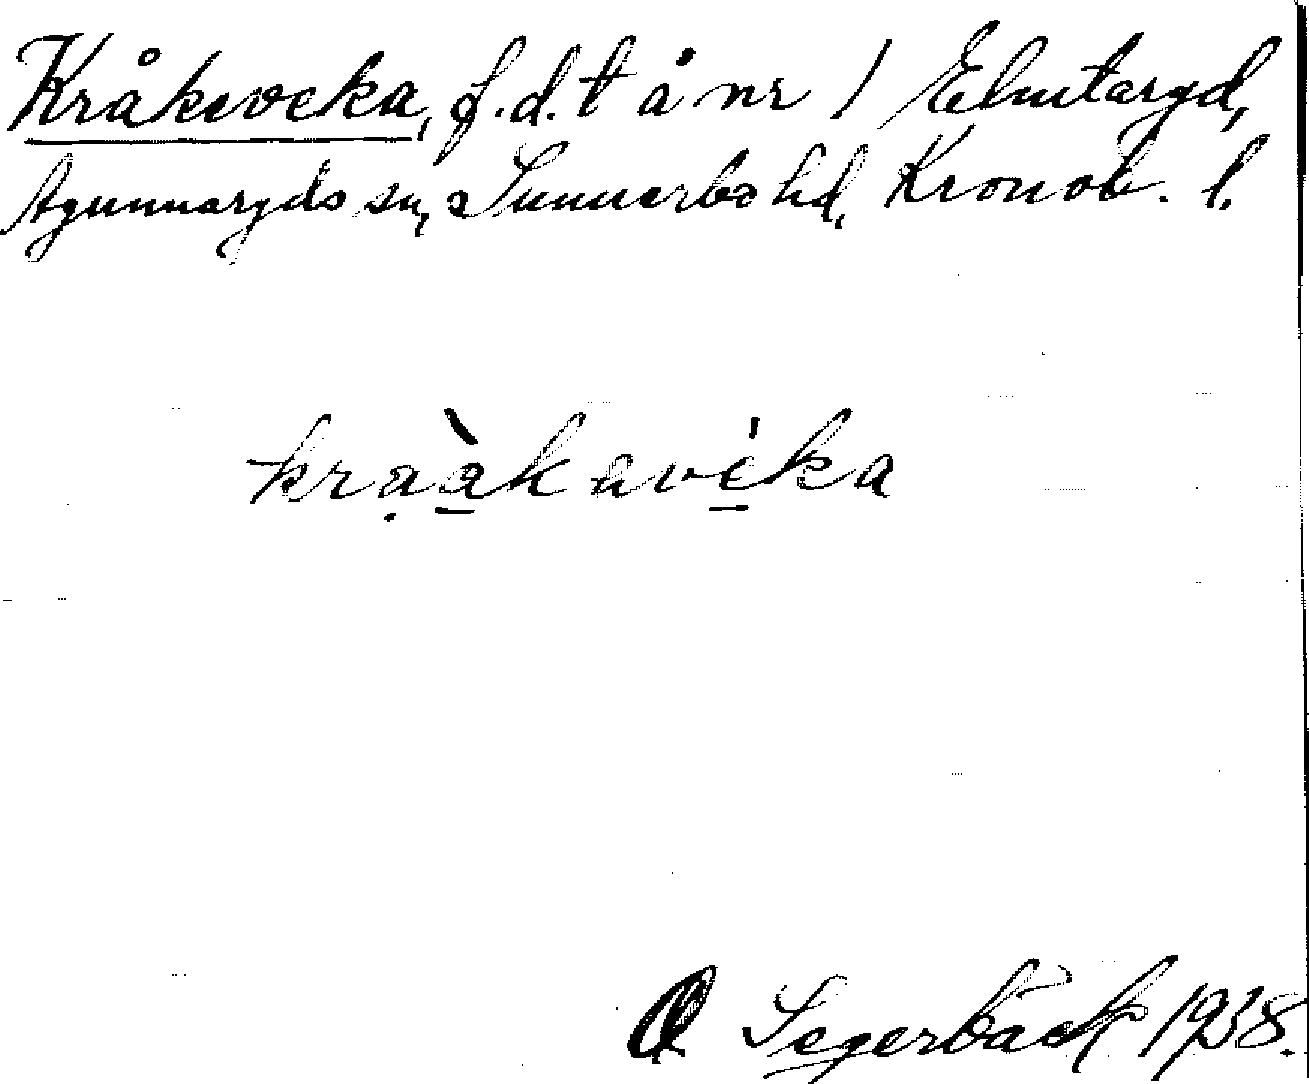 Kråkeveka, f.d. t å nr 1 Elmtaryd,
Agunnaryds sn, Sunnerbo hd, Kronob. l.
krạà̱kavė̱ka
O Segerbäck 1938.